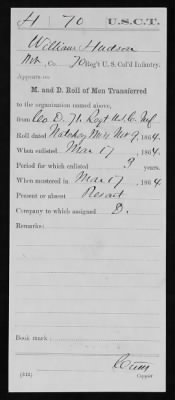 H 70 U.S.C.T.
William Hudson
Pvt., Co. 70 Reg't U. S. Col'd Infantry.
Appears on
M. and D. Roll of Men Transferred
to the organization named above,
from Co. D. 71 Regt U.S.C. Inf
Roll dated Natchez Miss Nov 9, 1864.
When enlisted Mar 17, 1864.
Period for which enlisted 3 years.
When mustered in Mar 17, 1864
Present or absent Present
Company to which assigned D.
Remarks:
Book mark:
(342) Copyist.